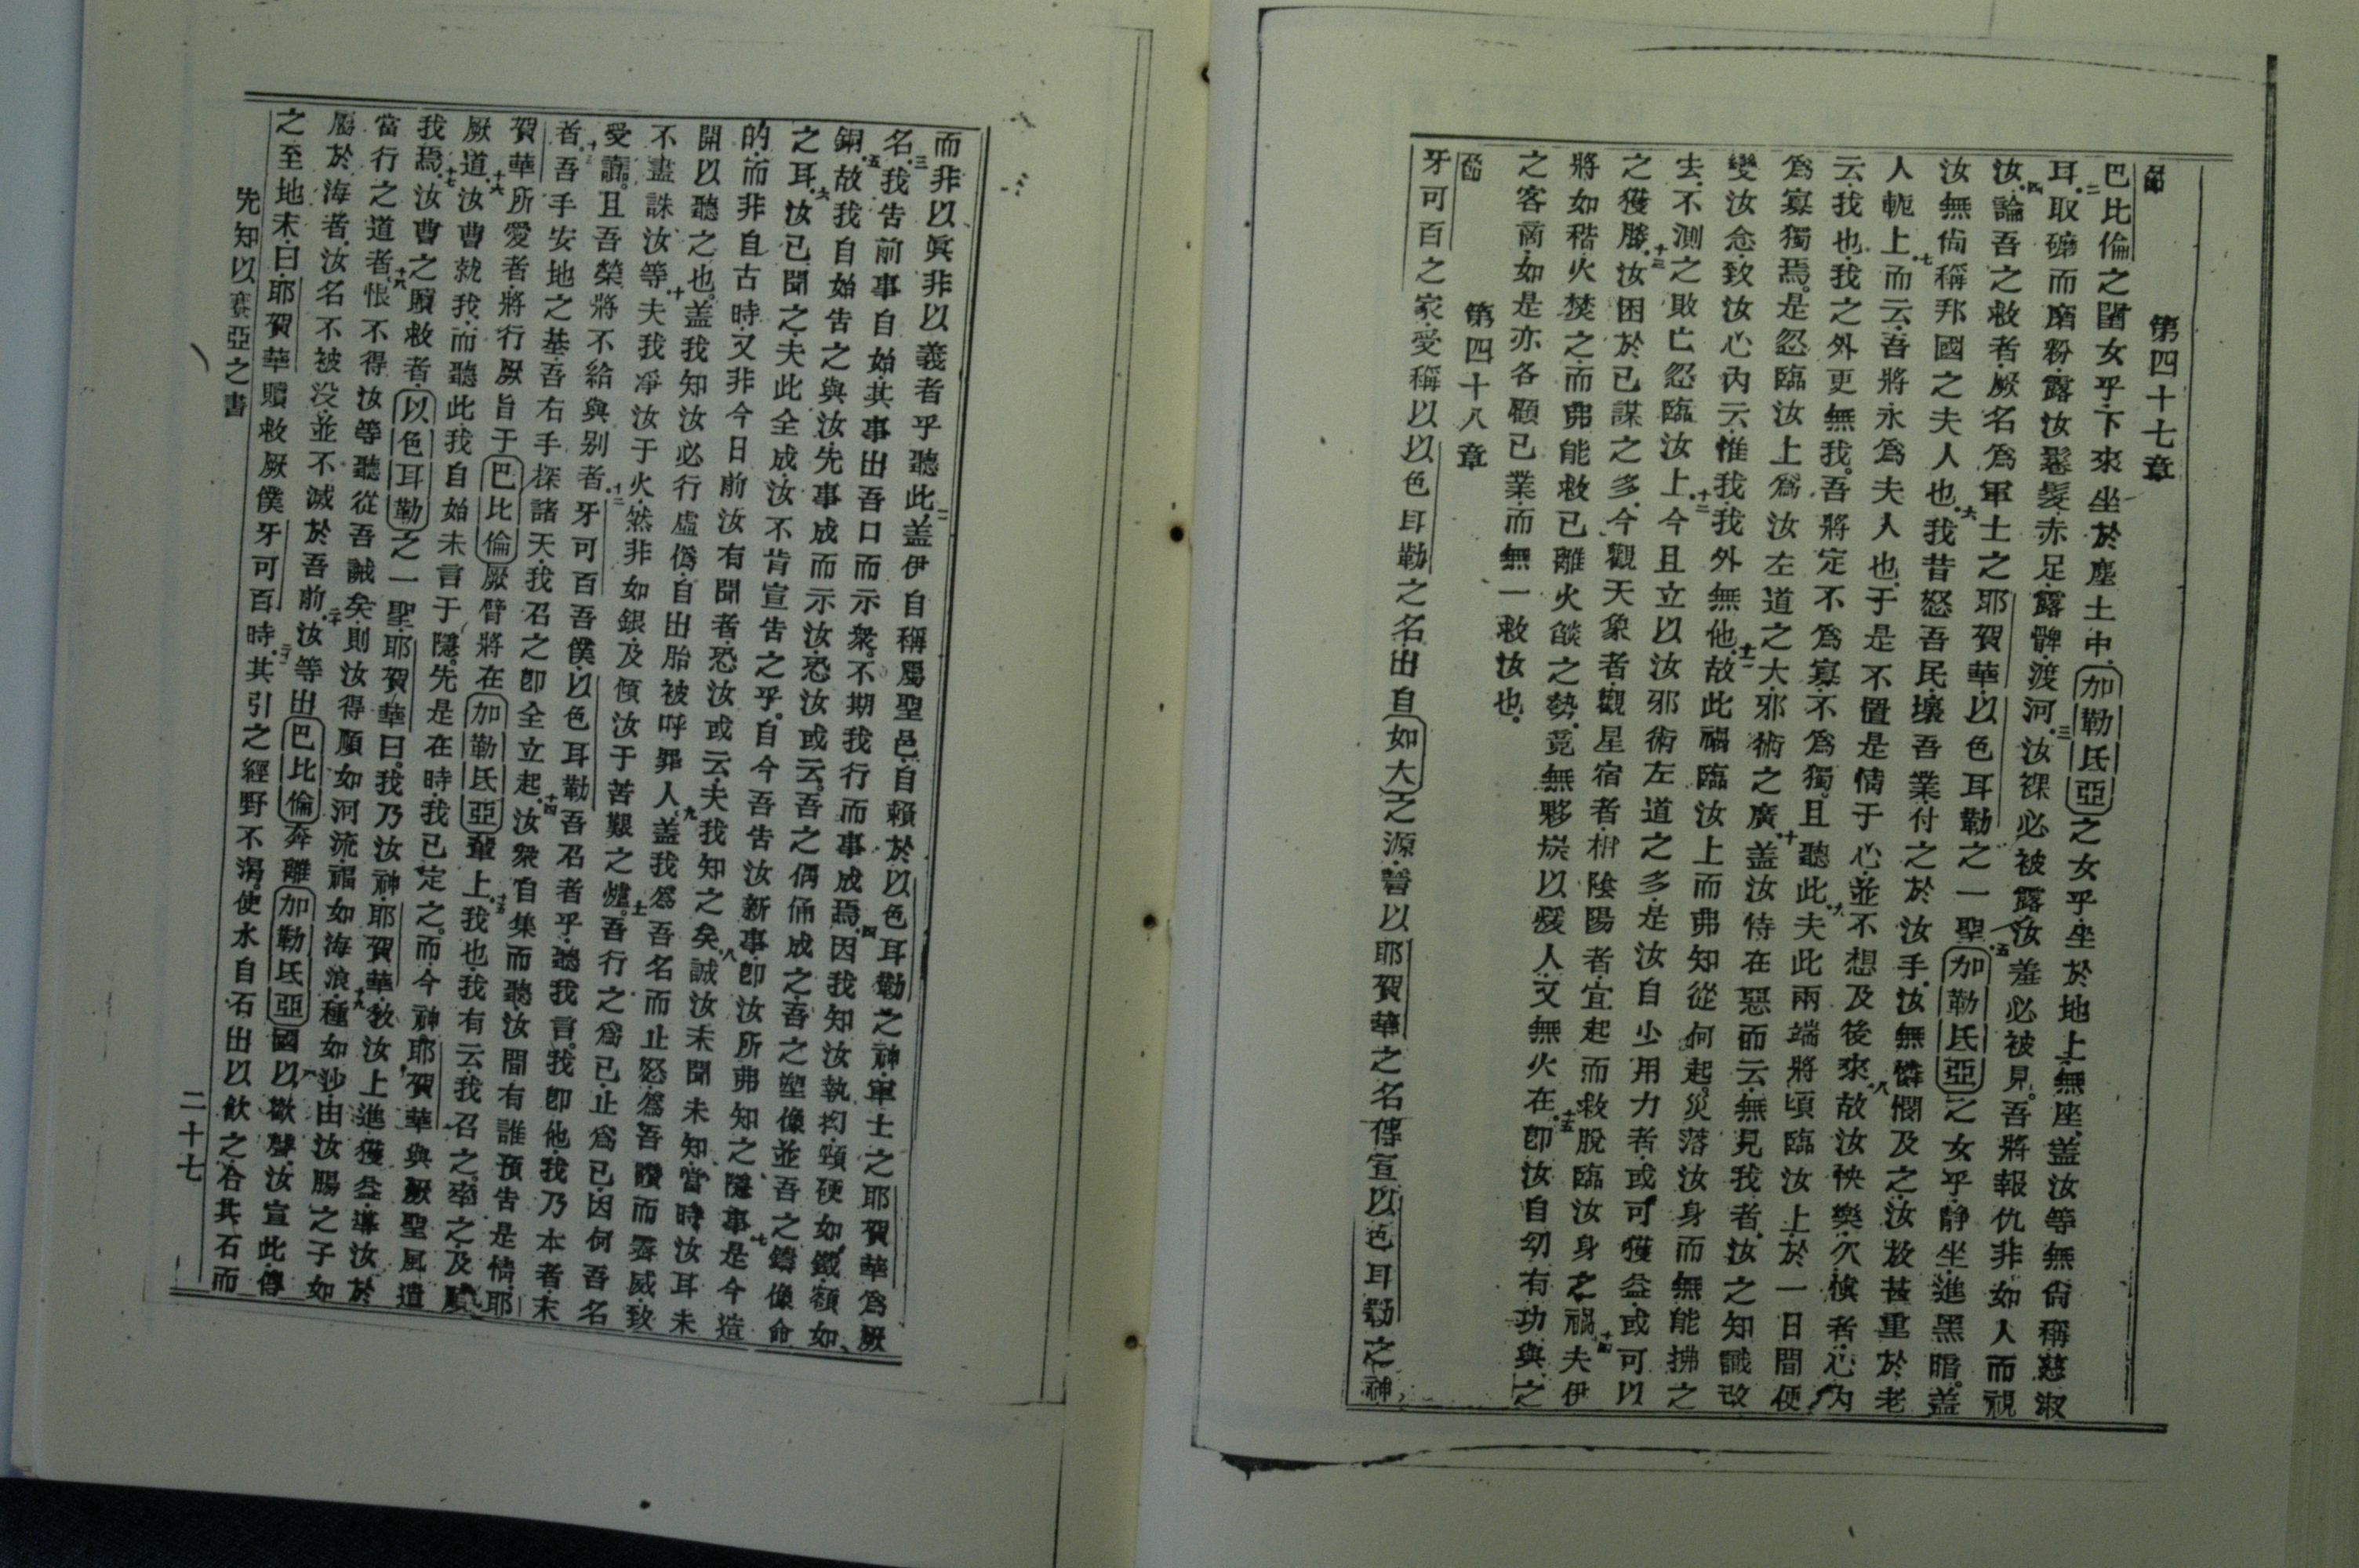 第四十七章
節
巴比倫之閨女乎下來坐於塵土中加勒氏亞之女乎坐於地上無座蓋汝等無尙稱慈淑
耳二取磨而磨粉露汝鬆髮赤足露髀渡河三汝裸必被露汝羞必被見吾將報仇非如人而視
汝四論吾之救者厥名爲軍士之耶賀華以色耳勒之一聖五加勒氏亞之女乎靜坐進黑暗蓋
汝無尙稱邦國之夫人也六我昔怒吾民壞吾業付之於汝手汝無憐憫及之汝放甚重於老
人軛上七而云吾將永爲夫人也于是不置是情于心並不想及後來八故汝快樂穴慎者心內
云我也我之外更無我吾將定不爲寡不爲獨且聽此九夫此兩端將頃臨汝上於一日間便
爲寡獨焉是忽臨汝上爲汝左道之大邪術之廣十蓋汝恃在惡而云無見我者汝之知識改
變汝念致汝心內云惟我我外無他十一故此禍臨汝上而弗知從何起災落汝身而無能拂之
去不測之敗亡忽臨汝上十二今且立以汝邪術左道之多是汝自少用力者或可獲益或可以
之獲勝十三汝困於已謀之多今觀天象者觀星宿者相陰陽者宜起而救脫臨汝身之禍十四夫伊
將如稭火焚之而弗能救已離火燄之勢竟無夥炭以煖人又無火在十五卽汝自幼有功與之
之客商如是亦各顧已業而無一救汝也
第四十八章
節
牙可百之家受稱以以色耳勒之名出自如大之源誓以耶賀華之名傳宣以色耳勒之神
而非以眞非以義者乎聽此二蓋伊自稱屬聖邑自賴於以色耳勒之神軍士之耶賀華爲厥
名三我吿前事自始其事出吾口而示衆不期我行而事成焉四因我知汝執拘頸硬如鐵額如
銅五故我自始吿之與汝先事成而示汝恐汝或云吾之偶俑成之吾之塑像並吾之鑄像命
之耳六汝已聞之夫此全成汝不肯宣吿之乎自今吾吿汝新事卽汝所弗知之隱事七是今造
的而非自古時又非今日前汝有聞者恐汝或云夫我知之矣八誠汝未聞未知當時汝耳未
開以聽之也蓋我知汝必行虛僞自出胎被呼罪人九蓋我爲吾名而止怒爲吾讚而霽威致
不盡誅汝等十夫我凈汝于火然非如銀及傾汝于苦艱之爐十一吾行之爲已止爲已因何吾名
受讟且吾榮將不給與別者十二牙可百吾僕以色耳勒吾召者乎聽我言我卽他我乃本者末
者十三吾手安地之基吾右手探諸天我召之卽全立起十四汝衆自集而聽汝間有誰預吿是情耶
賀華所愛者將行厥旨于巴比倫厥臂將在加勒氏亞輩上十五我也我有云我召之率之及順
厥道十六汝曹就我而聽此我自始未言于隱先是在時我已定之而今神耶賀華與厥聖風遣
我焉十七汝曹之贖救者以色耳勒之一聖耶賀華曰我乃汝神耶賀華敎汝上進獲益導汝於
當行之道者十八悵不得汝等聽從吾誡矣則汝得順如河流福如海浪十九種如沙由汝腸之子如
屬於海者汝名不被没並不滅於吾前二十汝等出巴比倫奔離加勒氏亞國以歡聲汝宣此傳
之至地末曰耶賀華贖救厥僕牙可百時二一其引之經野不渴使水自石出以飮之合其石而
先知以賽亞之書
二十七